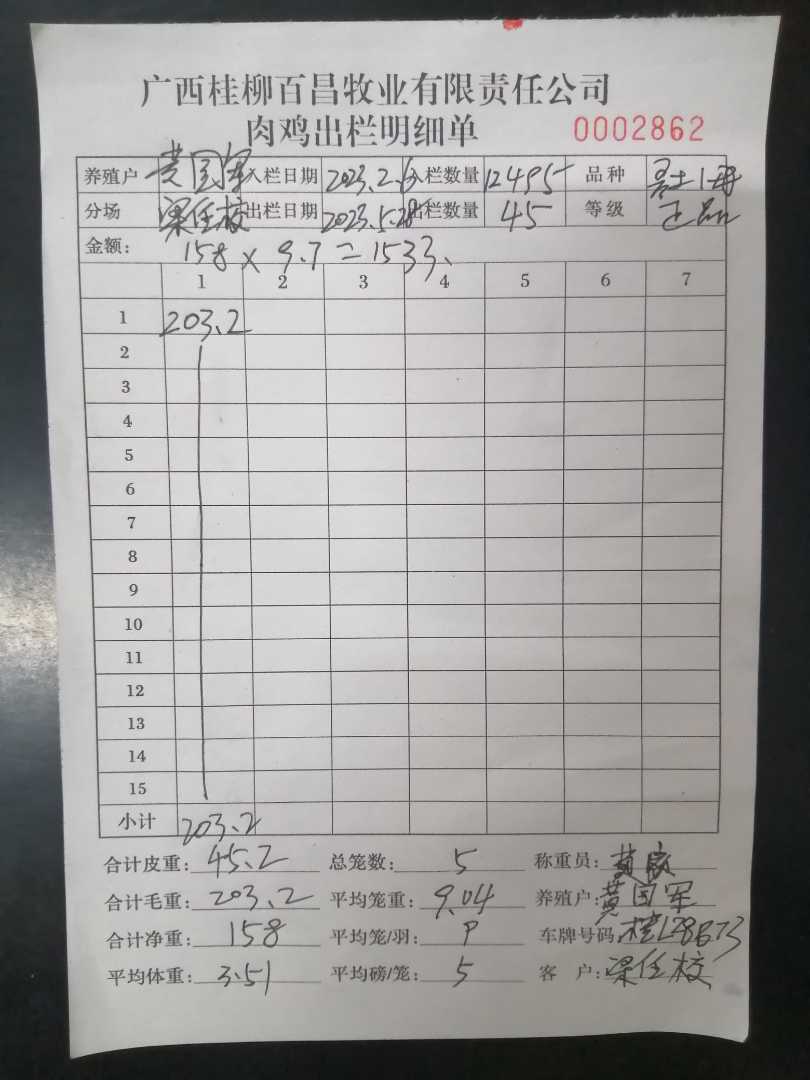 广西桂柳百昌牧业有限责任公司
肉鸡出栏明细单 0002862
养殖户 黄国军 入栏日期 2023.2.6 入栏数量 12495 品种
分场 梁任校 出栏日期 2023.5.28 出栏数量 45 等级 正品
金额: 158 × 9.7 = 1533.
1 2 3 4 5 6 7
1 203.2
2
3
4
5
6
7
8
9
10
11
12
13
14
15
小计 203.2
合计皮重: 45.2 总笼数: 5 称重员: 黄
合计毛重: 203.2 平均笼重: 9.04 养殖户: 黄国军
合计净重: 158 平均笼/羽: 9 车牌号码:
平均体重: 3.51 平均磅/笼: 5 客 户: 梁任校